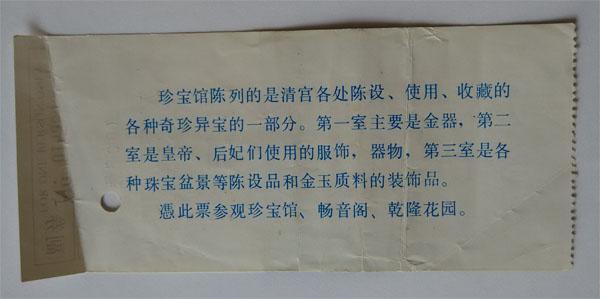 珍宝馆陈列的是清宫各处陈设、使用、收藏的
各种奇珍异宝的一部分。第一室主要是金器，第二
室是皇帝、后妃们使用的服饰，器物，第三室是各
种珠宝盆景等陈设品和金玉质料的装饰品。
憑此票参观珍宝馆、畅音阁、乾隆花园。